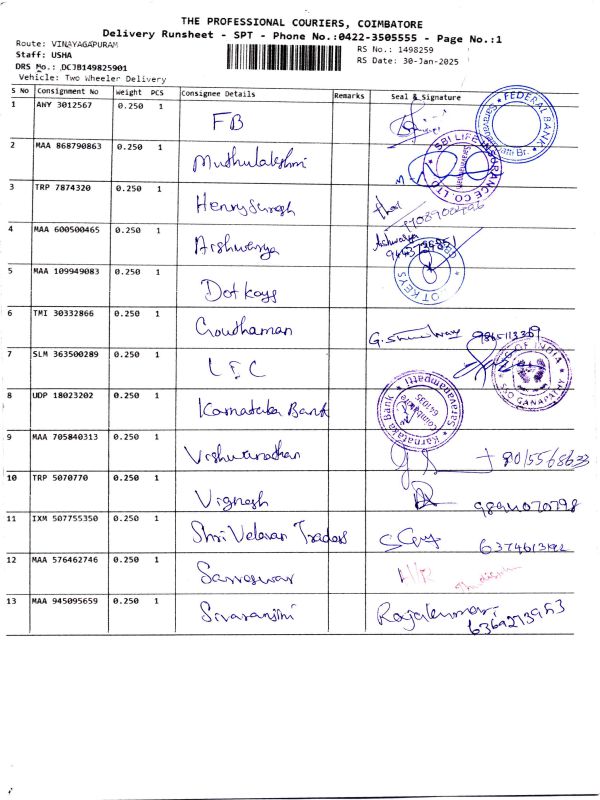 THE PROFESSIONAL COURIERS, COIMBATORE
Delivery Runsheet - SPT - Phone No.:0422-3505555 - Page No.:1
Route: VINAYAGAPURAM
Staff: USHA
DRS No.: DCJB149825901
Vehicle: Two Wheeler Delivery
RS No.: 1498259
RS Date: 30-Jan-2025
S No Consignment No Weight PCS Consignee Details Remarks Seal & Signature
1 ANY 3012567 0.250 1 FB
FEDERAL BANK
2 MAA 868790863 0.250 1 Muthulakshmi
SBI LIFE INSURANCE CO. LTD
3 TRP 7874320 0.250 1 Henry Suresh
4 MAA 600500465 0.250 1 Aishwarya Ashwarya
5 MAA 109949083 0.250 1 Dot Keys
DOT KEYS
6 TMI 30332866 0.250 1 Gowthaman
7 SLM 363500289 0.250 1 LIC
OF INDIA
S/O GANAPATHY
8 UDP 18023202 0.250 1 Karnataka Bank
Karnataka Bank Saravanampatti
Coimbatore
641035
9 MAA 705840313 0.250 1 Vishwanathan 8015568633
10 TRP 5070770 0.250 1 Vignesh
11 IXM 507755350 0.250 1 Shri Velavan Traders
12 MAA 576462746 0.250 1 Sarveswar
13 MAA 945095659 0.250 1 Sivaranjini Rajakumari